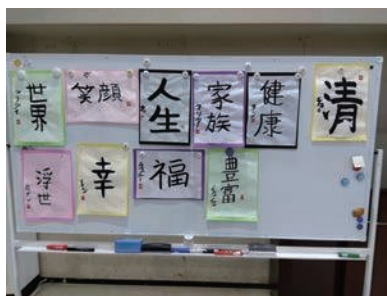 世界
笑顔
人生
家族
健康
清
浮世
幸
福
豊富